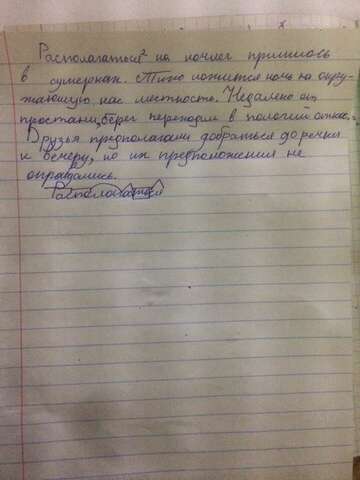 Располагаться² на ночлег пришлось
в сумерках. Тихо ложится ночь на окру-
жающую нас местность. Недалеко от
пристани, берег переходил в пологий откос.
Друзья предполагали добраться до речки
к вечеру, но их предположения не
оправдались.
Располагаться